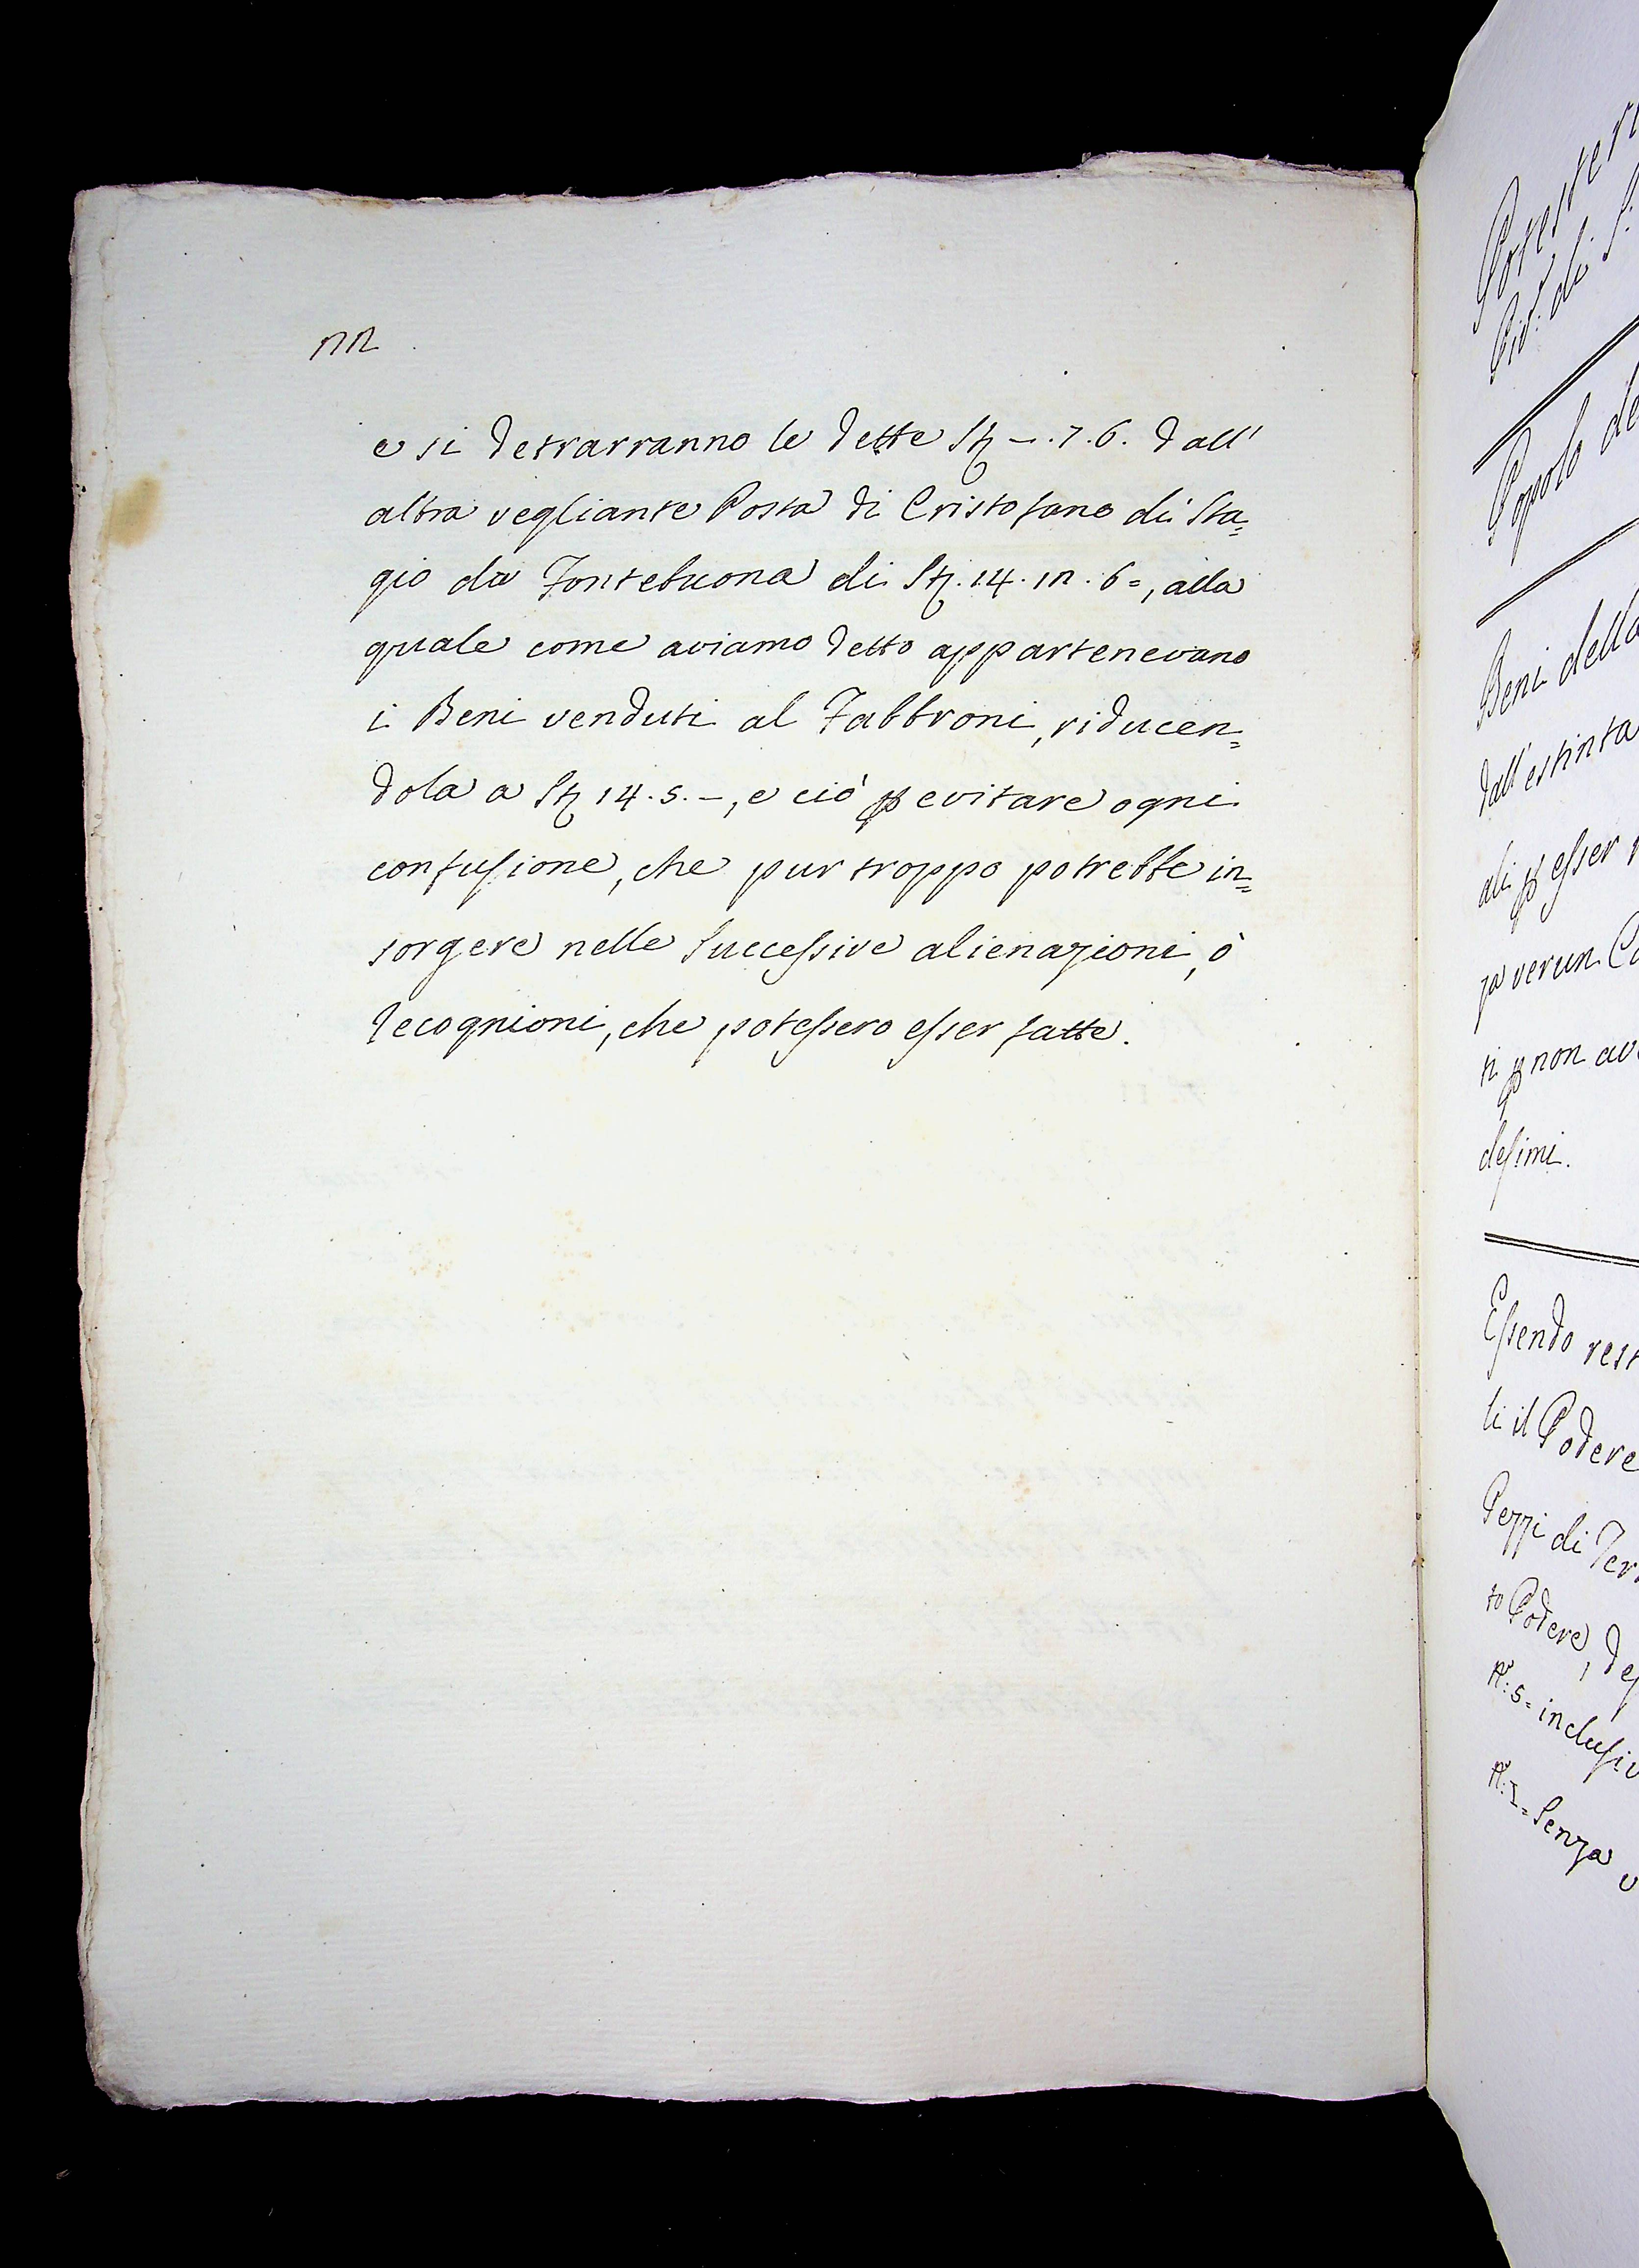 22
e si detrarranno le dette St. –.7.6. dall'
altra vegliante Posta di Cristofano di Sta=
gio da Fontebuona di St. 14.12.6=, alla
quale come aviamo detto appartenevano
i Beni venduti al Fabbroni, riducen=
dola a St. 14.5.–, e ciò p evitare ogni
confusione, che pur troppo potrebbe in=
sorgere nelle Successive alienazioni, ò
Recognioni, che potessero esser fatte.
Popolo de
Beni della
dall'estinta
di p esser
za verun
ti p non av
desimi.
Essendo rest
li il Podere
Pezzi di Ter
to Podere, de
N.º 5= inclusiv
N.º 1= Senza